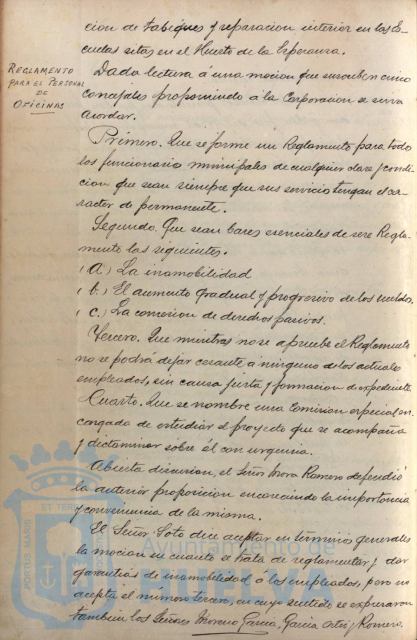 cion de tabiques y reparacion interior en las Es-
cuelas sitas en el Huerto de la Esperanza.
REGLAMENTO
PARA EL PERSONAL
DE
OFICINAS
Dada lectura á una mocion que suscriben cinco
concejales proponiendo á la Corporacion se sirva
acordar.
Primero. Que se forme un Reglamento para todo
los funcionario municipales de cualquier clase y condi-
cion que sean siempre que sus servicio tengan el ca-
racter de permanente.
Segundo. Que sean bases esenciales de ese Regla-
mento las siguientes.
(A.) La inamobilidad
(b.) El aumento gradual y progresivo de los sueldos.
(c.) La concesion de derechos pasivos.
Tercero. Que mientras no se apruebe el Reglamento
no se podrá dejar cesante á ninguno de los actuale
empleados, sin causa justa y formacion de expediente
Cuarto. Que se nombre una Comision especial en-
cargada de estudiar el proyecto que se acompaña
y dictaminar sobre él con urgencia.
Abierta discusion, el Señor Mora Romero defendió
la anterior proposicion encareciendo la importancia
y conveniencia de la misma.
El Señor Soto dice aceptar en terminos generales
la mocion en cuanto se trata de reglamentar y dar
garantias de inamobilidad á los empleados, pero no
acepta el número tercero, en cuyo sentido se expresaron
tambien los Señores Moreno García, García Ortiz y Romero.
PORTUS MARIS ET TERRÆ
Ayuntamiento de
HUELVA